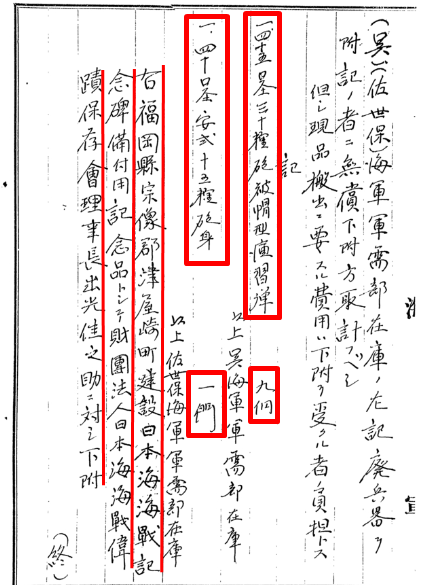 (呉)(佐世保)海軍軍需部在庫ノ左記廃兵器ヲ
附記ノ者ニ無償下附方取計フベシ
但シ現品搬出ニ要スル費用ハ下附ヲ受クル者負担トス
記
一、四五口径三十糎砲被帽徹甲演習弾 九個
以上呉海軍軍需部在庫
一、四十口径安式十五糎砲身 一門
以上佐世保海軍軍需部在庫
右福岡縣宗像郡津屋崎町建設日本海海戰記
念碑備付用記念品トシテ財團法人日本海海戰偉
蹟保存會理事長出光佳之助ニ対シ下附
(終)